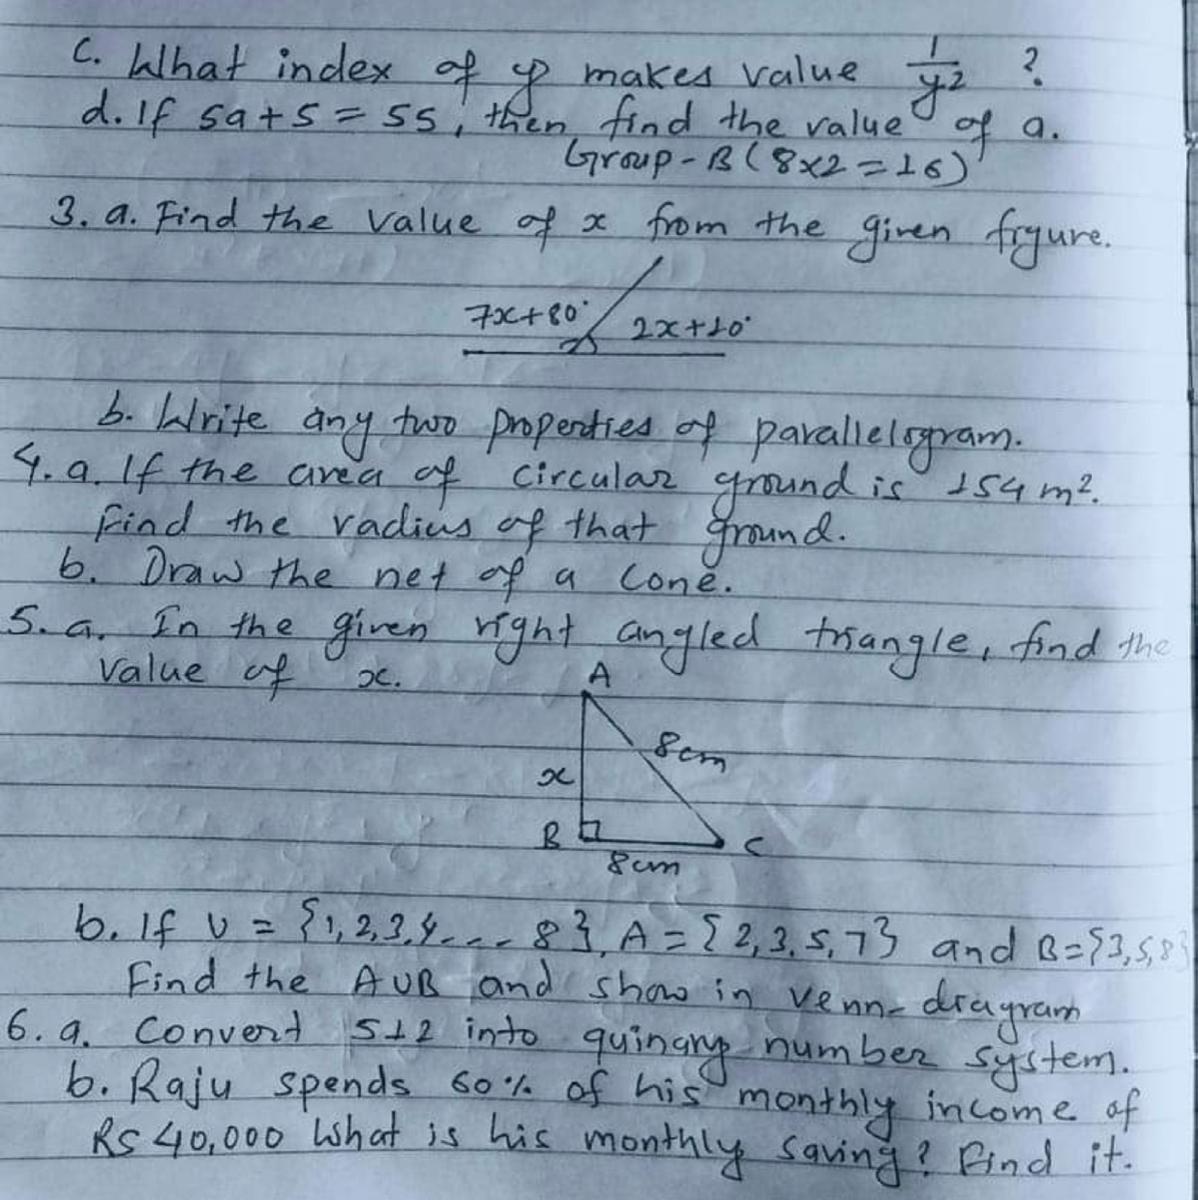 c. What index of y makes value 1/y² ?
d. If 5a+5=55, then find the value of a.
Group-B(8x2=16)
3. a. Find the value of x from the given frgure.
7x+80° 2x+10°
b. Write any two properties of parallelogram.
4. a. If the area of circular ground is 154 m².
Find the radius of that ground.
b. Draw the net of a cone.
5. a. In the given right angled triangle, find the
value of x.
A
8cm
x
B C
8cm
b. If U = {1,2,3,4.... 8}, A={2,3,5,7} and B={3,5,8}
Find the AUB and show in venn-diagram
6. a. Convert 512 into quinary number system.
b. Raju spends 60% of his monthly income of
RS 40,000 What is his monthly saving? Find it.